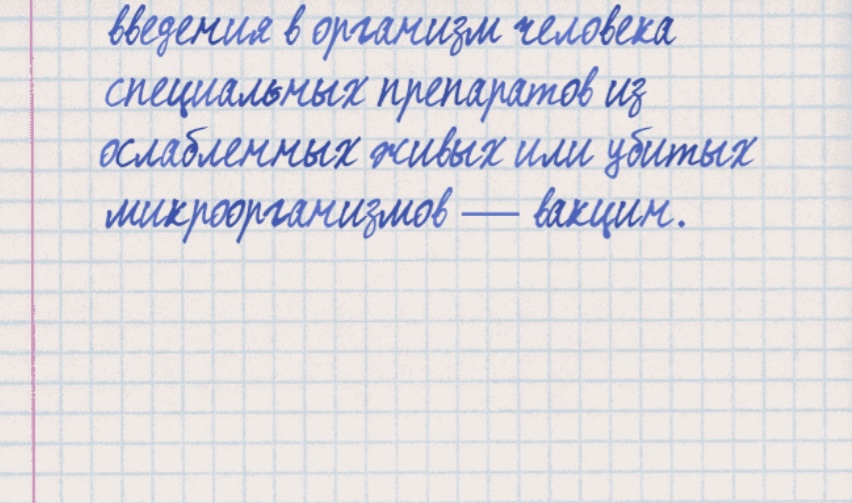 введения в организм человека
специальных препаратов из
ослабленных живых или убитых
микроорганизмов — вакцин.